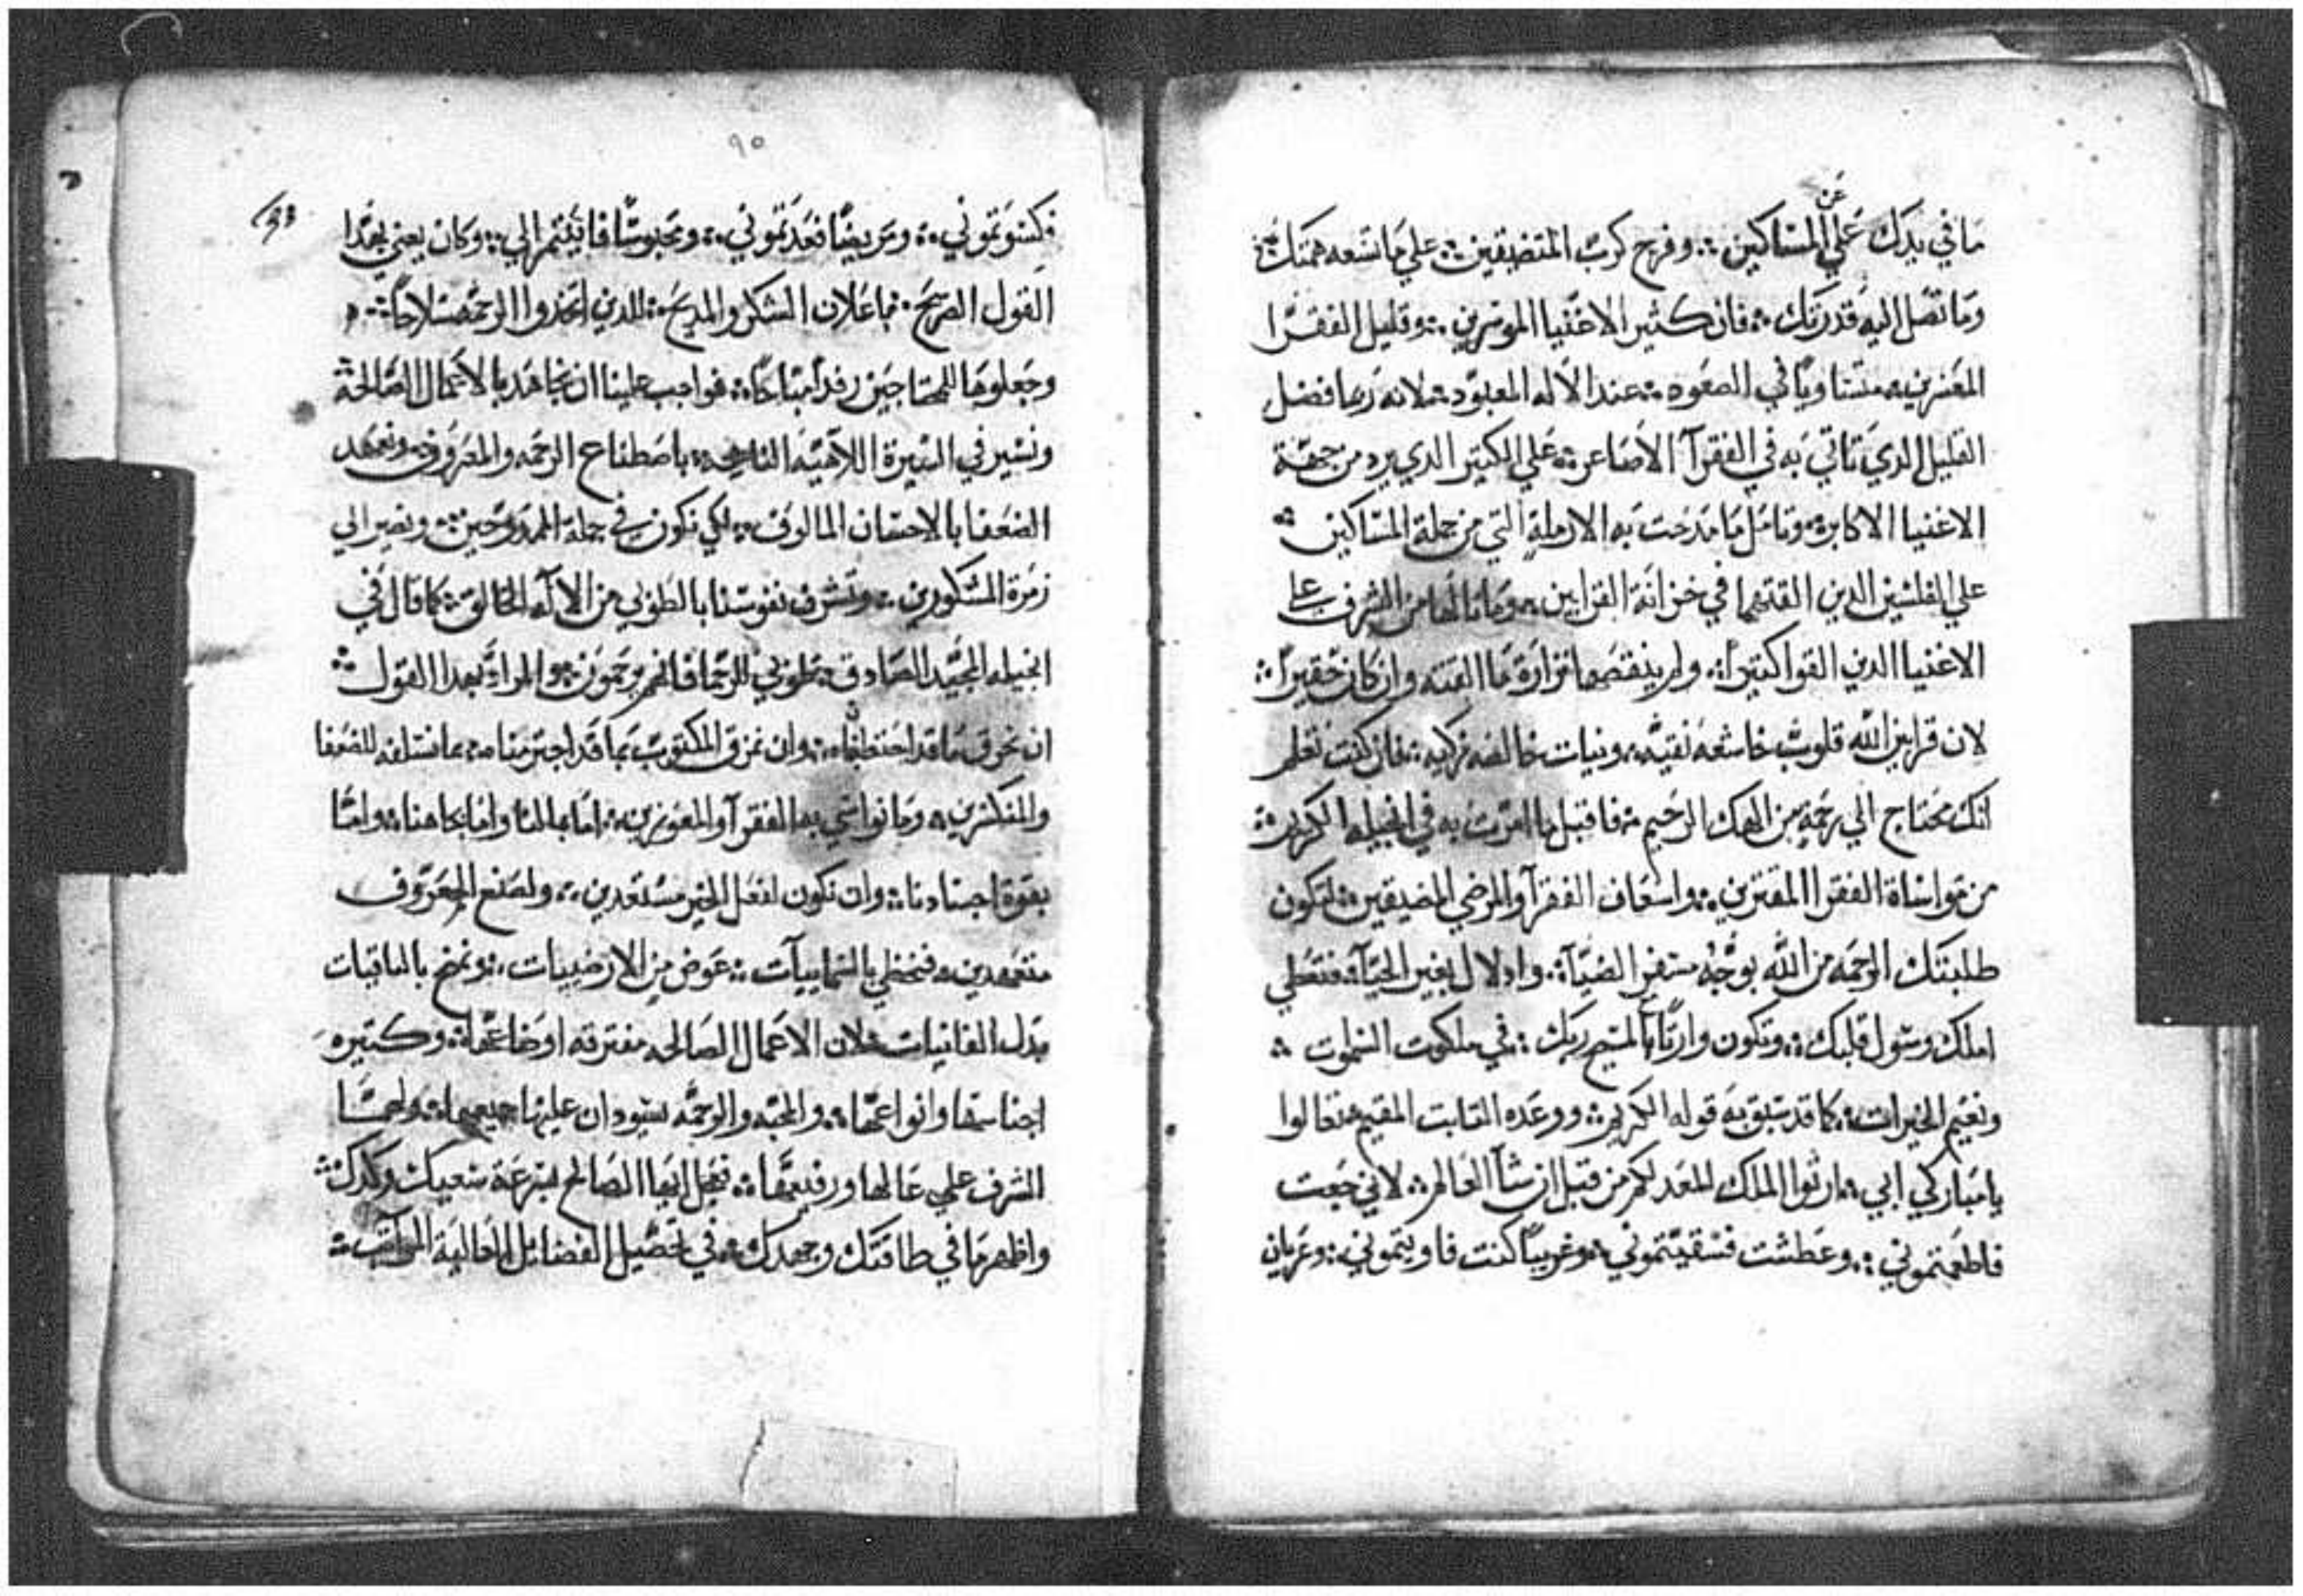 عن
ما في يدك علي المساكين ⁘ وفرج كرب المتضيقين ⁘ علي ما تسعه همتك ⁘
وما تصل اليه قدرتك ⁘ فان كثير الاغنيا الموسرين ⁘ وقليل الفقرا
المعسرين ⁘ متساويًا في الصعود ⁘ عند الاله المعبود ⁘ لانه ربما فضل
القليل الدي تاتي به في الفقرآ الاصاعر ⁘ علي الكتير الدي يرد من جهة
الاغنيا الاكابر ⁘ وتامل ما مدحت به الارملة التي من جملة المساكين ⁘
علي الفلسين الدين القتهما في خزانة القرابين ⁘ وما نالها من الشرف علي
الاغنيا الدين القوا كتيرًا ⁘ ولم ينقصها نزارة ما القته وان كان حقيرًا ⁘
لان قرابين الله قلوب خاشعه نقيه ⁘ ونيات خالصه زكيه ⁘ فان كنت تعلم
انك محتاج الي رحمةٍ من الهك الرحيم ⁘ فاقبل ما امرت به في انجيله الكريم ⁘
من مواساة الفقرا المقترين ⁘ واسعاف الفقرآ والمرضي المضيقين ⁘ لتكون
طلبتك الرحمه من الله بوجهٍ مسفر الضيآ ⁘ وادلال بغير الحيآ ⁘ فتعطي
املك وسول قلبك ⁘ وتكون وارتًا بالمسيح ربك ⁘ في ملكوت السموات ⁘
ونعيم الخيرات ⁘ كما قد سبق به قوله الكريم ⁘ ووعده التابت المقيم ⁘ تعالوا
يا مباركي ابي ⁘ ارثوا الملك المعد لكم من قبل انشآ العالم ⁘ لاني جعت
فاطعمتموني ⁘ وعطشت فسقيتموني ⁘ وغريبًا كنت فاويتموني ⁘ وعريان
٩٥
فكسوتموني ⁘ ومريضًا فعدتموني ⁘ ومحبوسًا فاتيتم الي ⁘ وكان يعني بهدا
القول الصريح ⁘ باعلان الشكر والمديح ⁘ للدين اتخدوا الرحمه سلاحًا ⁘
وجعلوها للمحتاجين رفدًا مباحًا ⁘ فواجب علينا ان نجاهد بالاعمال الصالحة ⁘
ونسير في السيرة اللاهيه الناجحه ⁘ باصطناع الرحمه والمعروف ⁘ ونعمهد
الضعفا بالاحسان المالوف ⁘ لكي نكون في جملة الممدوحين ⁘ ونصير الي
زمرة المشكورين ⁘ وتشرف نفوسنا بالطوبي من الاله الخالق ⁘ كما قال في
انجيله المجيد الصادق ⁘ طوبي للرحما فانهم يرحمون ⁘ والمراد بهدا القول ⁘
ان نحرق ما قد احتطبناه ⁘ وان نمزق المكتوب بما قد اجترمناه ⁘ بما نستلفه للضعفا
والمنكسرين ⁘ وما نواسي به الفقرآ والمعوزين ⁘ اما بمالنا واما بجاهنا ⁘ واما
بقوة اجسادنا ⁘ وان نكون لفعل الخير مستعدين ⁘ ولصنع المعروف
متعمدين ⁘ فنحظي بالسماييآت ⁘ عوض من الارضييات ⁘ ونمنح بالباقيات
بدل الفانيات ⁘ لان الاعمال الصالحه مفترقه اوضاعها ⁘ وكتيره
اجناسها وانواعها ⁘ والمحبه والرحمه يسودان عليها جميعها ⁘ ولهما
الشرف علي عاليها ورفيعها ⁘ فعجل ايها الصالح بسرعة سعيك وكدك ⁘
واظهر ما في طاقتك وجهدك ⁘ في تحصيل الفضائل العالية المراتب ⁘